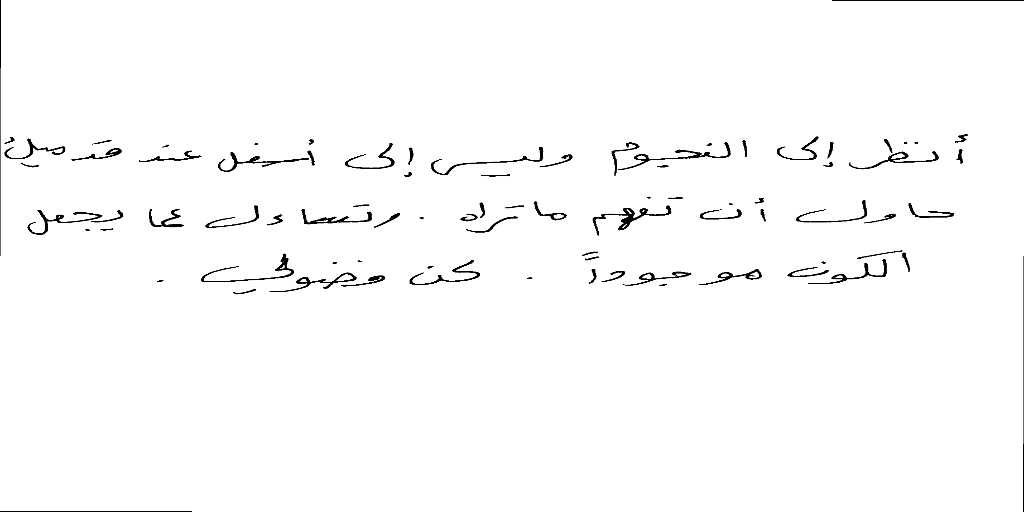 أنظر إلى النجوم وليس إلى أسفل عند قدميك
حاول أن تفهم ما تراه . وتساءل عما يجعل
الكون موجوداً . كن فضولي .